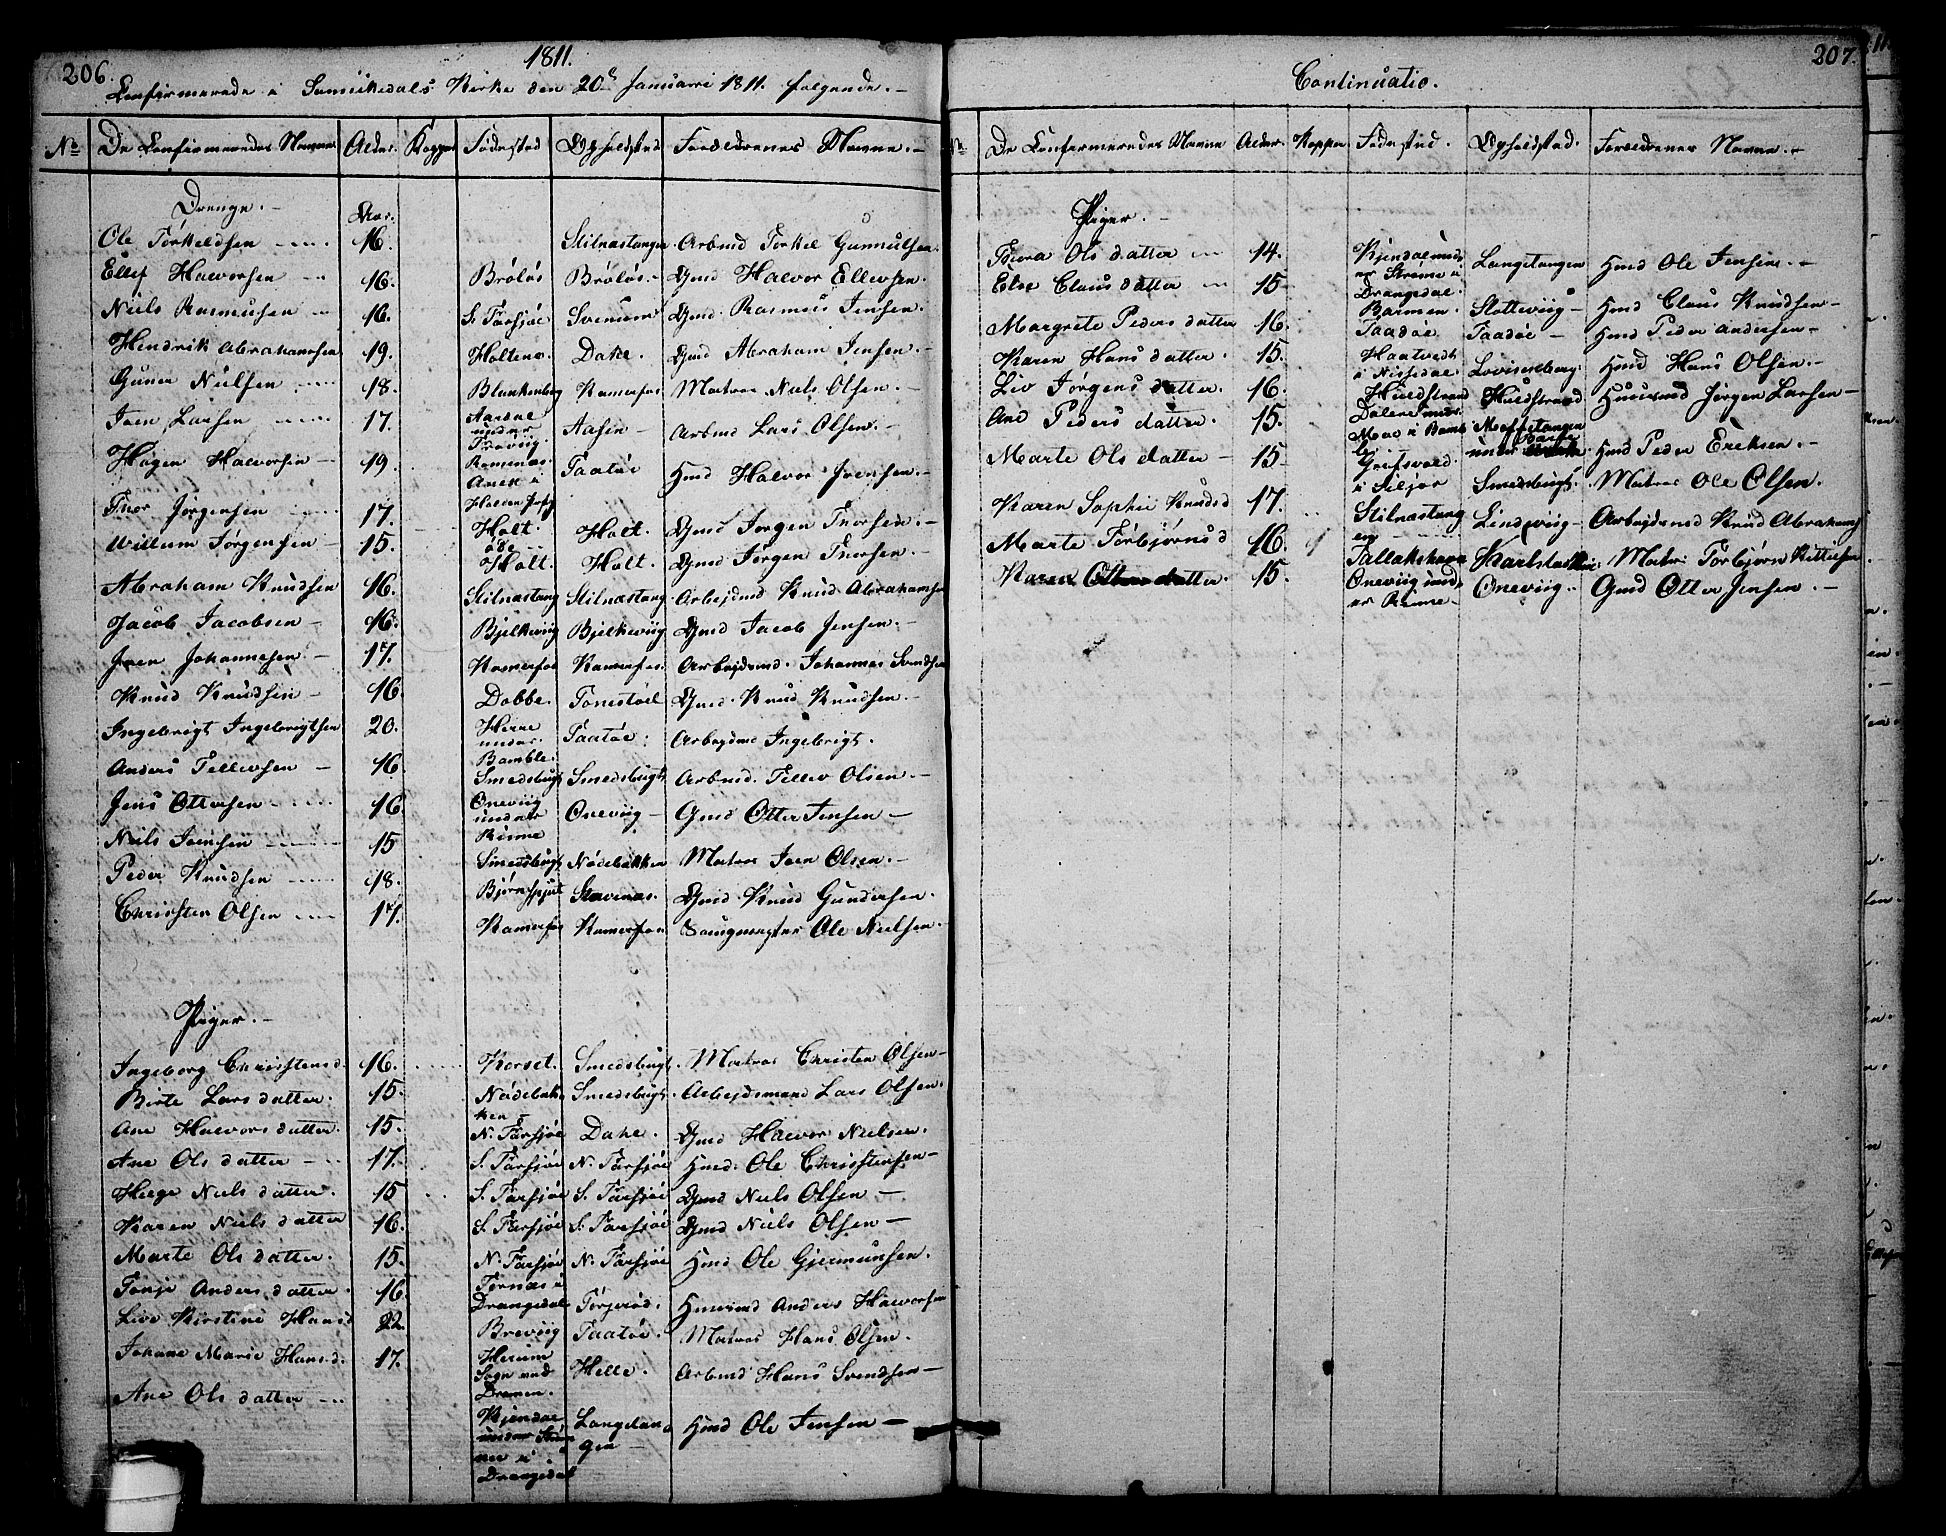 206.
1811.
Confirmerede i Sannikedals Kirke den 20de Januari 1811. følgende. –
No De Confirmeredes Navne Alder. Kopper Fødested Opholdsted Forældrenes Navne. –
Drenge. – Aar.
Ole Törkeldsen 16. Stilnestangen Arbmd Torkel Gunnulsen.
Ellef Halvorsen 16. Bröløs Bröløs. Gmd Halvor Ellevsen.
Niels Rasmusen 16. S. Farsjöe Svenum Gmd. Rasmus Jensen.
Hendrik Abrahamsen 19. Holtene Dahe. Gmd Abraham Jensen. –
Guner Nielsen 18. Blankenberg Kamerfos Matros Niels Olsen. –
Joen Larsen 17. Aarsae under Travviig. Aasen – Arbmd Lars Olsen. –
Högen Halvorsen 19. Anex i Taatöe Hmd Halvor Jversen. –
Thor Jörgensen 17. Holt. Holt. Gmd Jorgen Thorsen. –
Willum Jörgensen 15. Holt. Holt. Gmd Jörgen Thorsen. –
Abraham Knudsen 16. Stilnestang Stilnestang. Arbejdmd Knud Abrahamsen
Jacob Jacobsen – 16. Bjelkeviig Bjelkeviig Gmd Jacob Jensen. –
Joen Johannesen. – 17. Kamerfos Kamerfos. Arbejdsmd. Johannes Svendsen
Knud Knudsen – 16 Dobbe. Tonestöel Gmd. Knud Knudsen. –
Ingebrigt Ingebrigtsen 20. Herre under Bamble. Taatöe. Arbejdmd Ingebrigt.
Anders Tellevsen – 16 Smedsbugt Smedsbugt Arbmd. Tellev Olsen. –
Jens Ottersen 16 Oneviig under Rönne Oneviig – Gmd Otter Jensen –
Niels Joensen 15 Smedsbugt Nödebakken Matros Joen Olsen. –
Peder Knudsen 18. Stavenes. Gmd Knud Gundersen.
Christen Olsen 17. Kamerfos Kamerfos Saugmester Ole Nielsen.
Piger. –
Ingeborg Christensd. 16. Korset. Smedsbugt. Matros Christen Olsen –
Birte Lars datter. 15. Nödebakken – Smedsbugt. Arbejdsmand Lars Olsen.
Ane Halvors datter. 15. N. Farsjöe Dahe. Gmd Halvor Nielsen.
Ane Ols datter 17. S. Farsjöe N. Farsjöe Hmd. Ole Christensen –
Helge Niels datter. 15 S. Farsjöe S. Farsjöe Gmd Niels Olsen –
Karen Niels datter 16. S. Farsjöe S. Farsjöe Gmd Niels Olsen –
Marte Ols datter. 15. N. Farsjöe N. Farsjöe Hmd Ole Gjermunsen.
Tonje Anders datter. 16. Tornæs i Drangedal Törjeröd. Huusmd Anders Halvorsen
Live Kirstine Hansd 22. Breviig Taatöe. Matros Hans Olsen.
Johane Marie Hansd. 17. Sogn ved Dramen. Helle. Arbmd Hans Svendsen –
Ane Ols datter Kjendae under Ströme i Drangedal Langetangen – Hmd Ole Jensen –
207.
Continuatio.
No De Confirmeredes Navne Alder. Kopper Fødested. Opholdsted. Forældrenes Navne. –
Piger. –
Thora Ols datter 14. Kjendae under Ströme i Drangedal. Langetangen Hmd Ole Jensen. –
Else Claus datter 15 Barmen. Slotteviig – Hmd Claus Knudsen –
Margrete Peders datter 16. Taadöe Taadöe – Hmd Peder Andersen –
Karen Hans datter. 15. Haatvedt i Nissedal Lovisenberg. Hmd Hans Olsen. –
Liv Jörgens datter. 16. Huldstrand Huldstrand Huusmd Jörgen Larsen –
Ane Peders datter. 15. Hmd Peder Eriksen. –
Marte Ols datter – 15 Greifsvold i Siljor Smedsbugt. Matros Ole Olsen.
Karen Sophie Knudsd 17. Stilnestangen Lindeviig – Arbejdsmd Knud Abrahams
Marte Törbjörnsd 16. Tallakshavn Karlstatten. Matros Törbjörn Kittilsen
Karen Otters datter. 15. Oneviig under Rönne – Oneviig. Gmd Otter Jensen. –